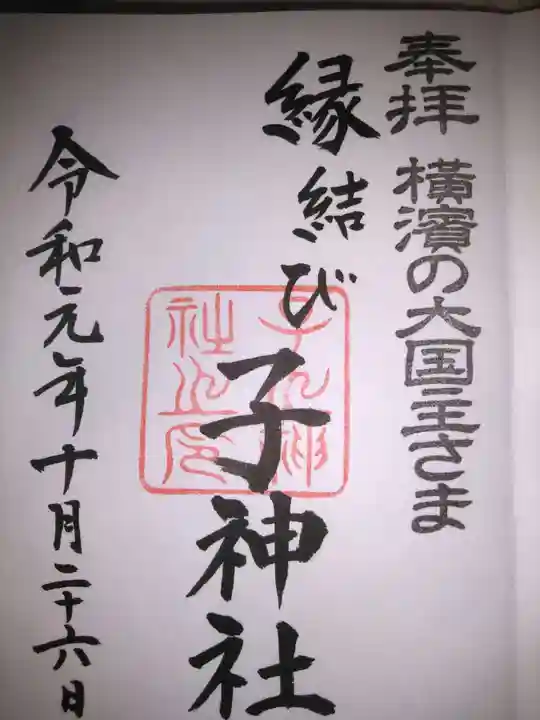 奉拝 横濱の大国主さま
縁結び 子神社
子之神社之印
令和元年十月二十六日